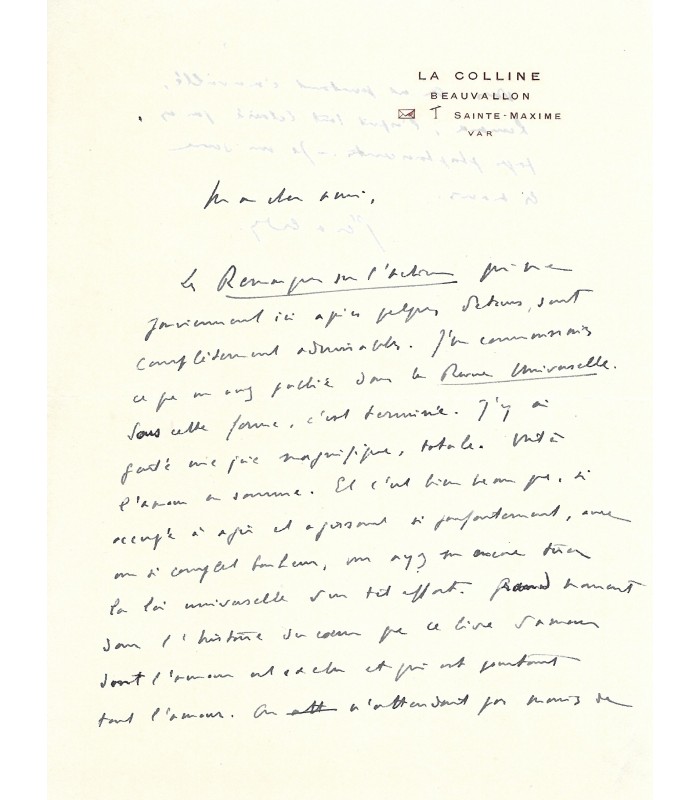 LA COLLINE
BEAUVALLON
T SAINTE-MAXIME
VAR
Mon cher ami,
Les Remarques sur l'action qui me
parviennent ici après quelques détours, sont
complètement admirables. J'en connaissais
ce que en avez publié dans la Revue Universelle.
Sous cette forme, c'est terminé. J'y ai
goûté une joie magnifique, totale. Voilà
l'amour en somme. Et c'est bien beau que, si
occupé à agir et agissant si profondément, avec
un si complet bonheur, vous ayez su encore tirer
la loi universelle d'un tel effort. Grand moment
dans l'histoire du cœur que ce livre d'amour
dont l'amour est exclu et qui est pourtant
tout l'amour. On n'attendait pas moins de